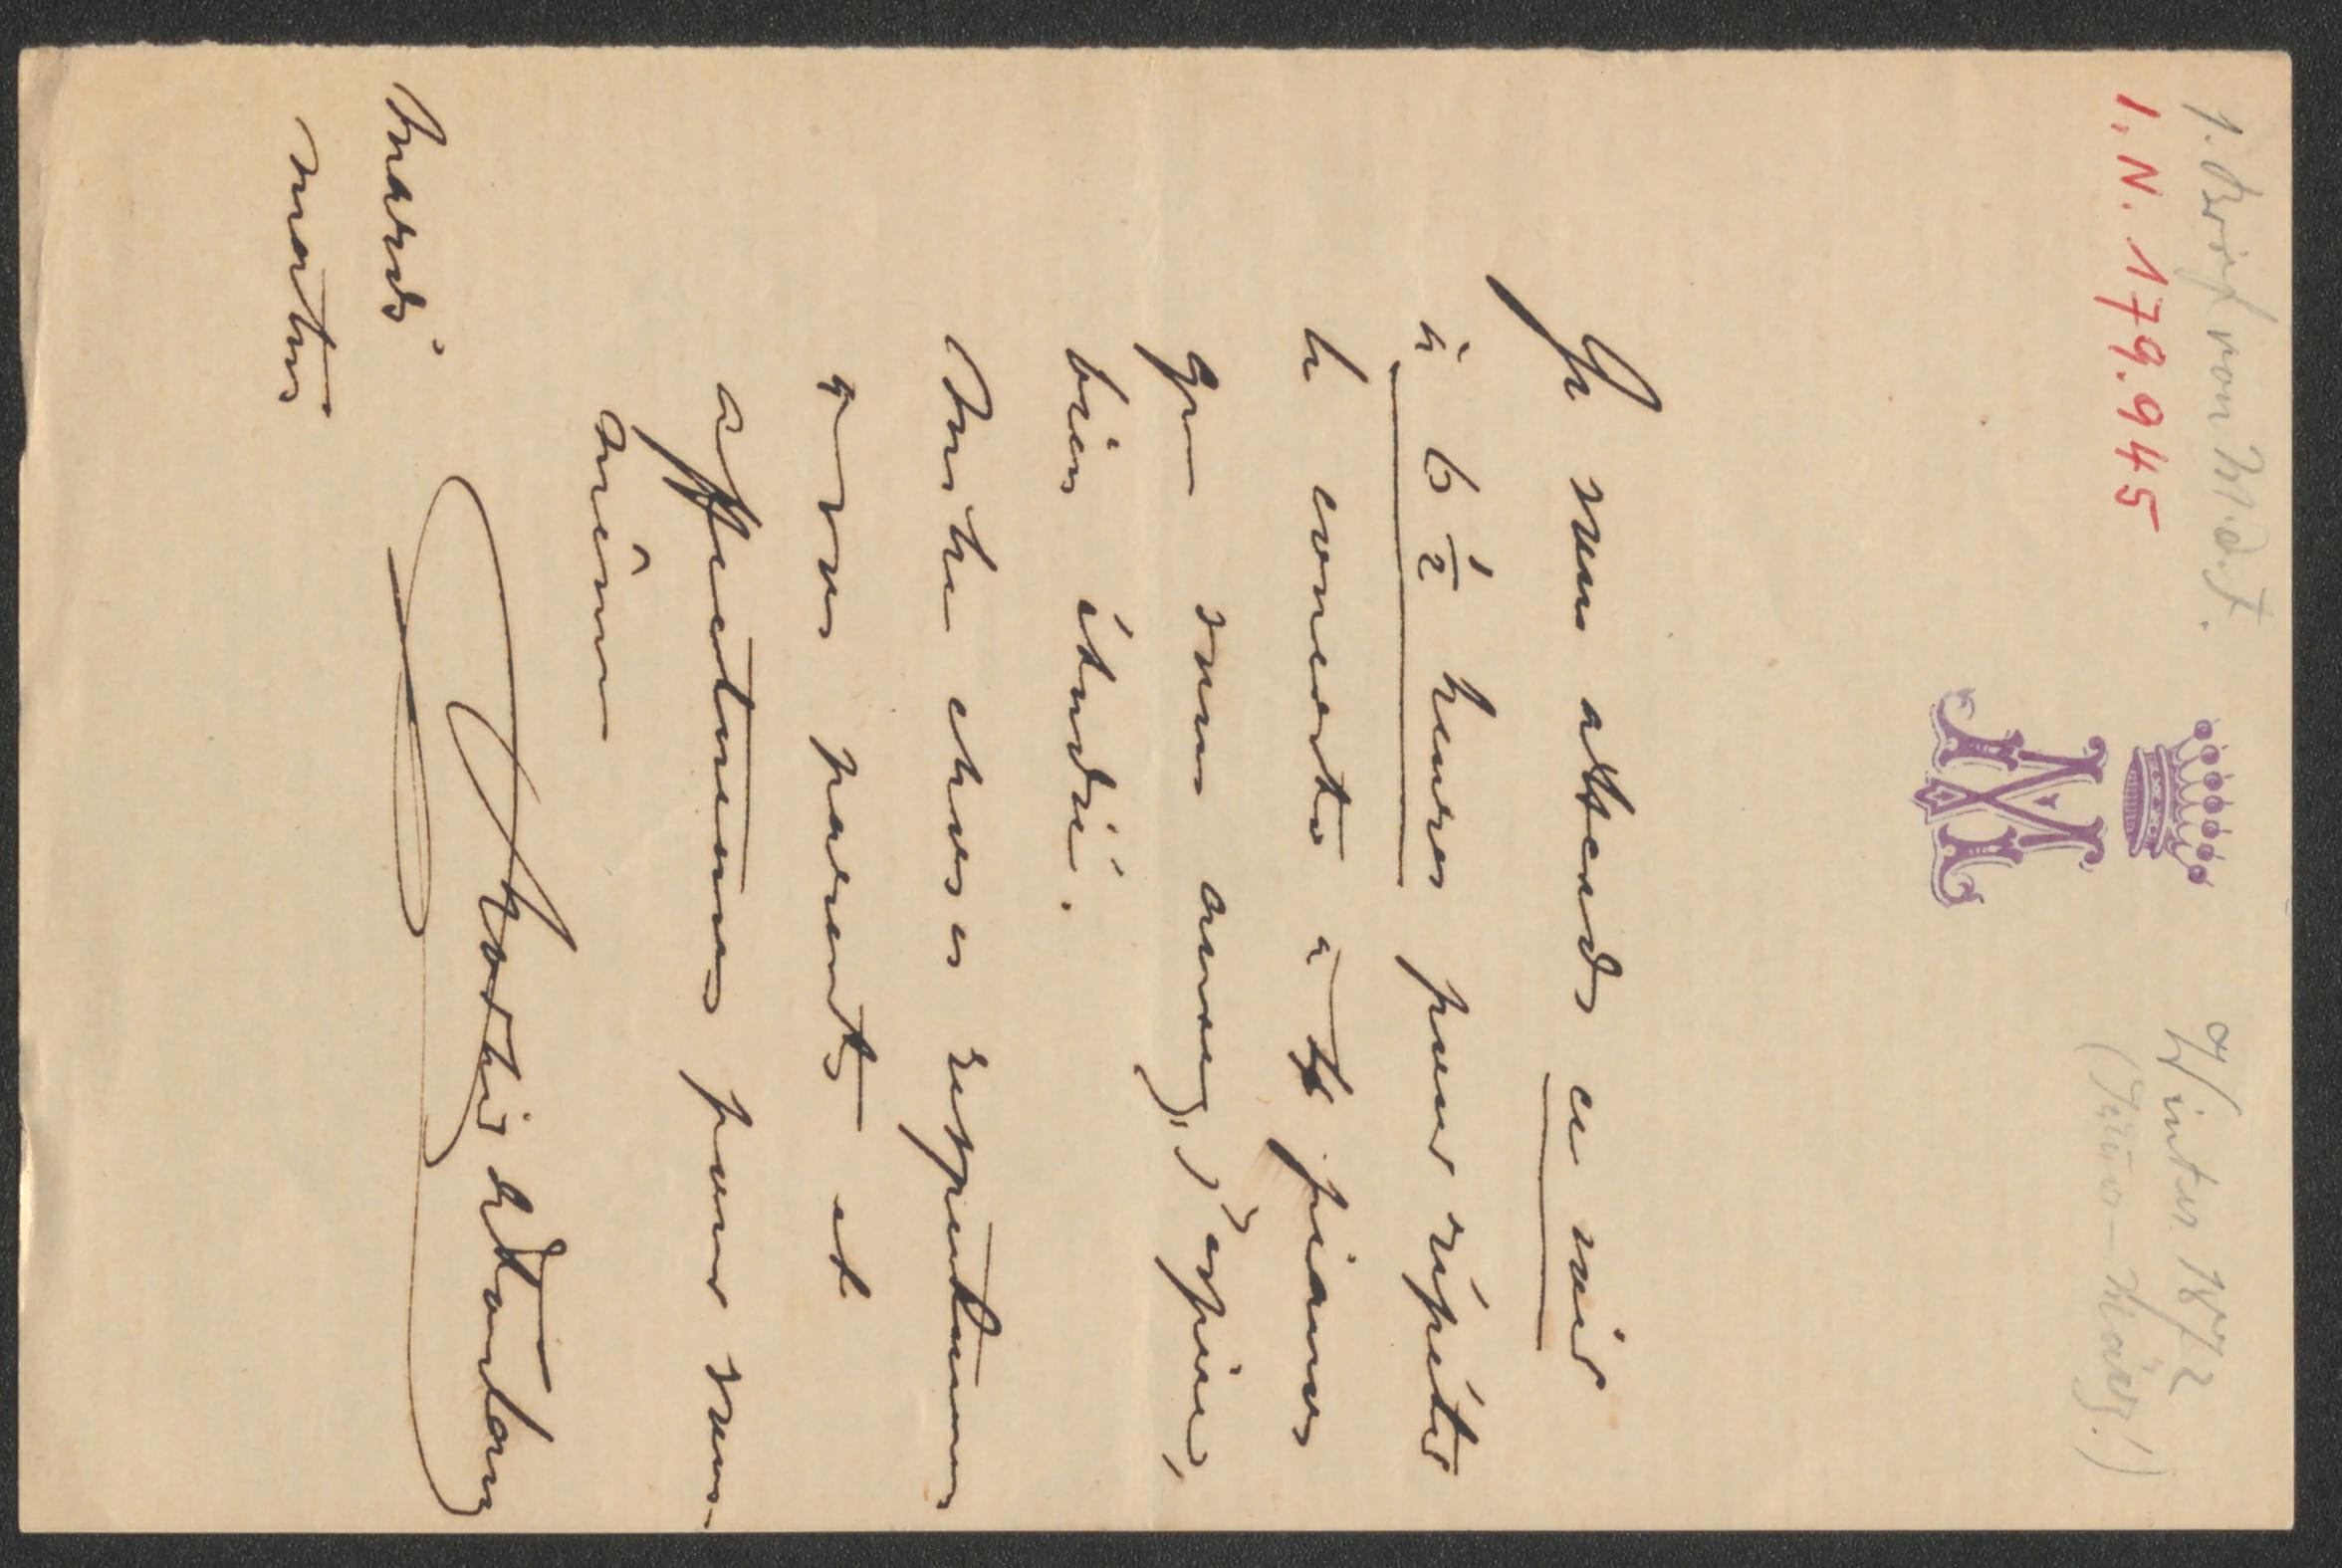 1. Brief von M. d. F.
I. N. 179.945
Winter 1872
(Jänner – März!)
M
Je vous attends ce soir
à 6 1/2 heures pour répéter
le concerto à 2 pianos
que vous aurez, j'espère,
bien étudié.
Mille choses respectueuses
à vos parents et
affectueuses pour vous-
même
Mardi
matin